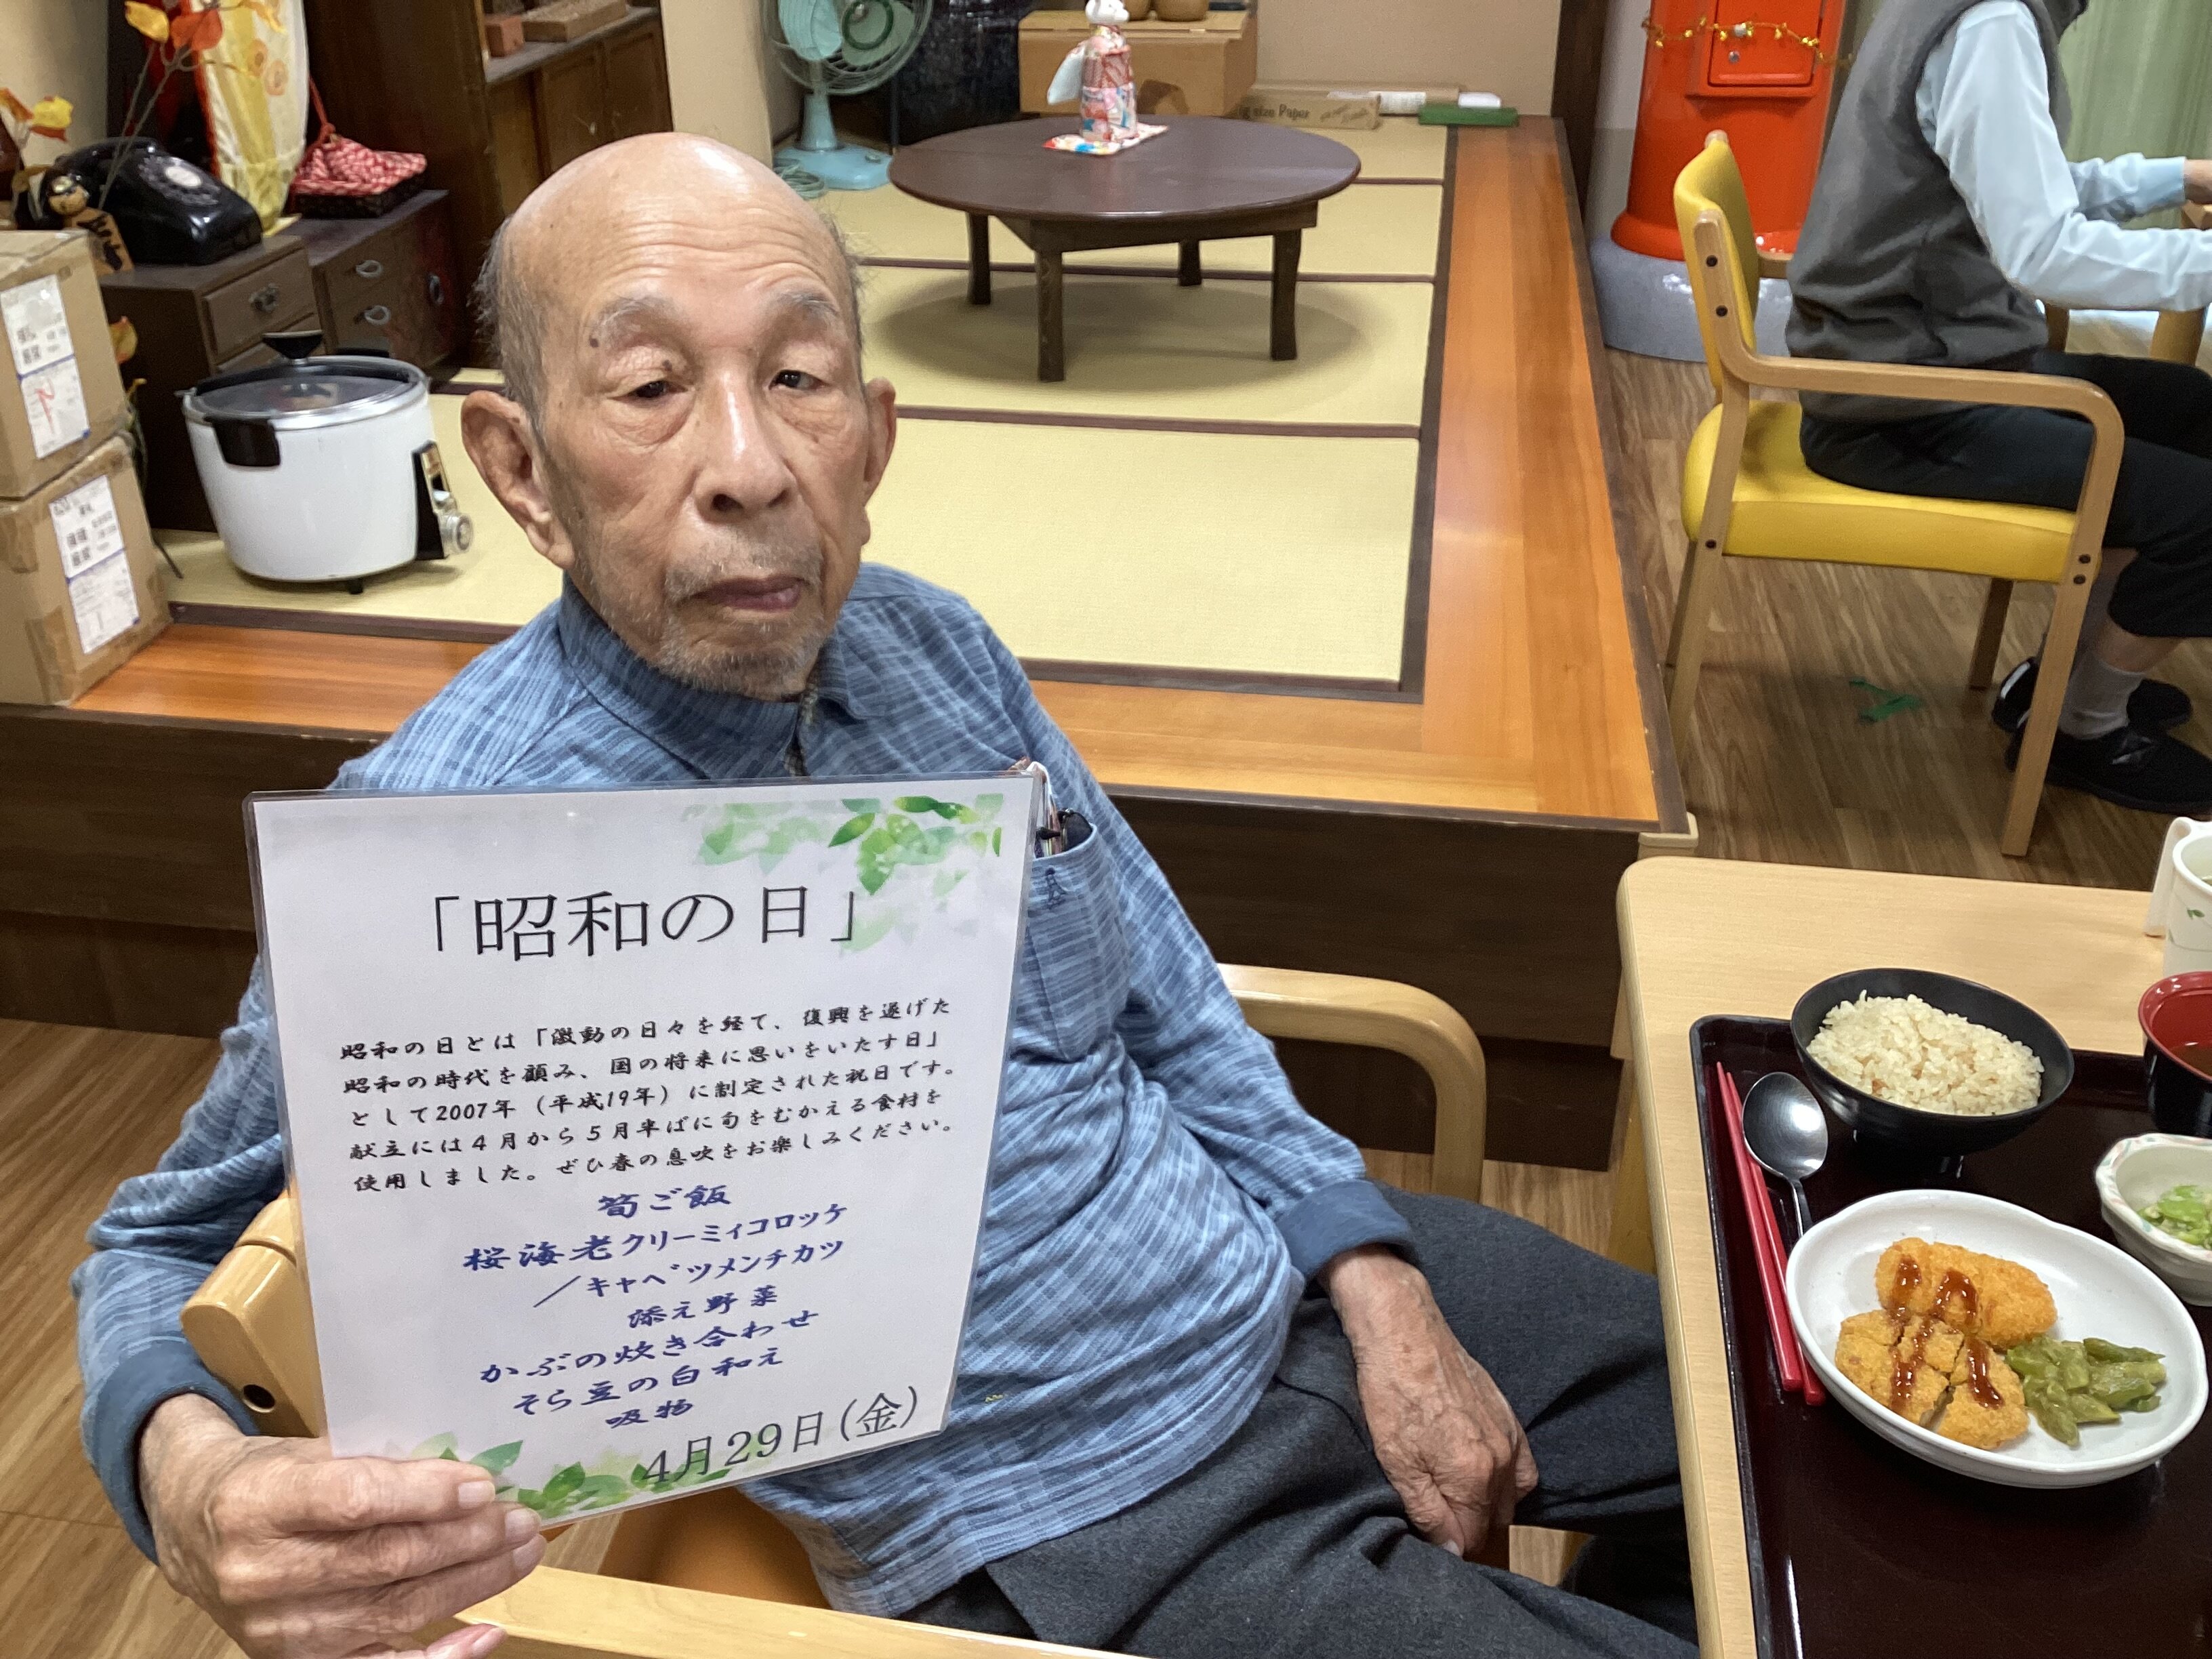 size Paper
「昭和の日」
昭和の日とは「激動の日々を経て、復興を遂げた
昭和の時代を顧み、国の将来に思いをいたす日」
として2007年（平成19年）に制定された祝日です。
献立には４月から５月半ばに旬をむかえる食材を
使用しました。ぜひ春の息吹をお楽しみください。
筍ご飯
桜海老クリーミィコロッケ
／キャベツメンチカツ
添え野菜
かぶの炊き合わせ
そら豆の白和え
吸物
4月29日(金)